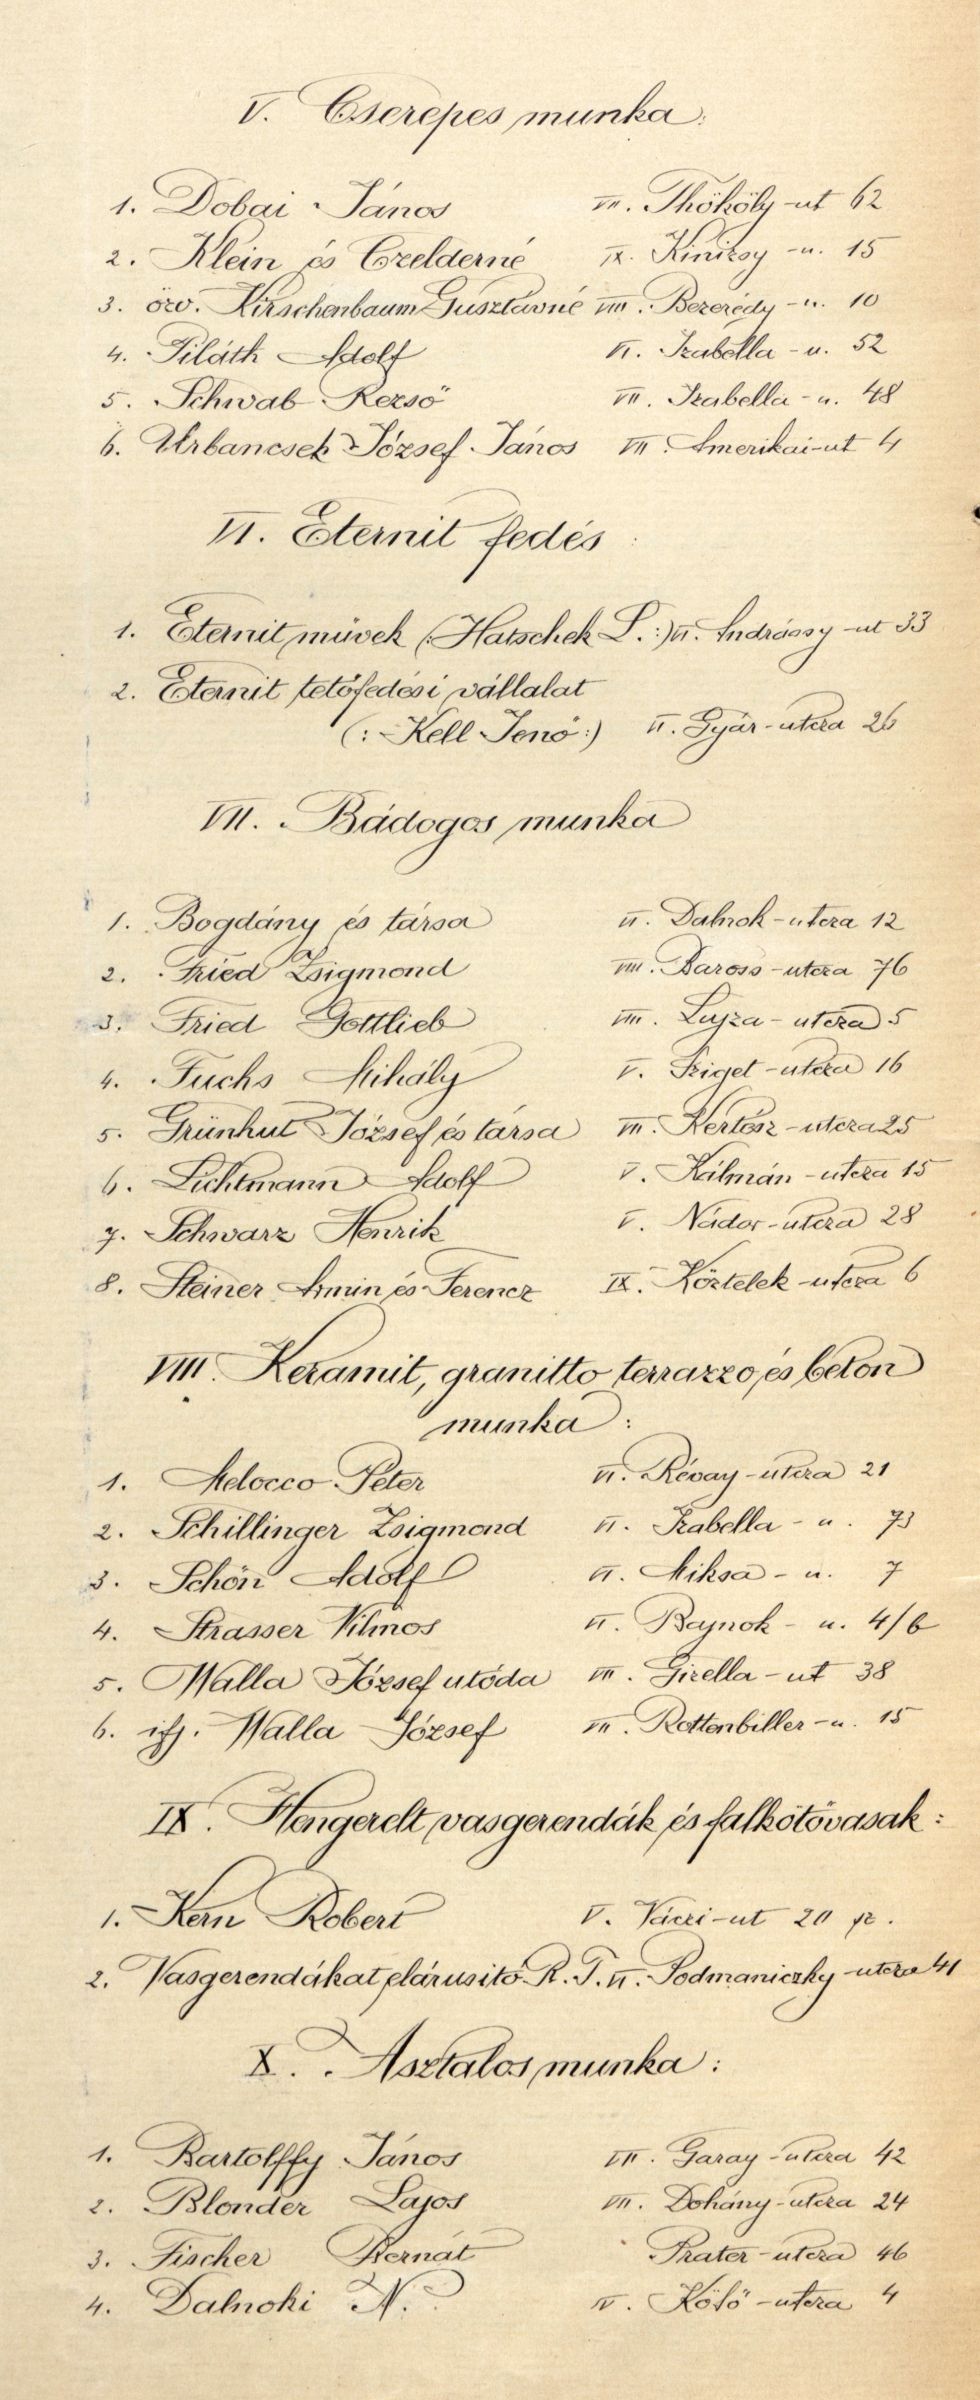 V. Cserepes munka:
1. Dobai János VII. Thököly-ut 62
2. Klein és Czelderné IX. Kinizsy-u. 15
3. özv. Kirschenbaum Gusztávné VIII. Bezerédy-u. 10
4. Piláth Adolf VI. Izabella-u. 52
5. Schwab Rezső VII. Izabella-u. 48
6. Urbancsek József János VII. Amerikai-ut 4
VI. Eternit fedés:
1. Eternit művek (:Hatschek L.:) VI. Andrássy-ut 33
2. Eternit tetőfedési vállalat
(:Kell Jenő:) VI. Gyár-utcza 26
VII. Bádogos munka
1. Bogdány és társa VI. Dalnok-utcza 12
2. Fried Zsigmond VIII. Baross-utcza 76
3. Fried Gottlieb VIII. Lujza-utcza 5
4. Fuchs Mihály V. Sziget-utcza 16
5. Grünhut József és társa VII. Kertész-utcza 25
6. Lichtmann Adolf V. Kálmán-utcza 15
7. Schwarz Henrik V. Nádor-utcza 28
8. Steiner Ármin és Ferencz IX. Köztelek-utcza 6
VIII. Keramit, granitto, terrazzo, és beton
munka:
1. Melocco Péter VI. Révay-utcza 21
2. Schillinger Zsigmond VI. Izabella-u. 73
3. Schön Adolf VI. Miksa-u. 7
4. Strasser Vilmos VI. Bajnok-u. 4/6
5. Walla József utóda VII. Gizella-ut 38
6. ifj. Walla József VII. Rottenbiller-u. 15
IX. Hengerelt vasgerendák és falkötővasak:
1. Kern Robert V. Váczi-ut 20 sz.
2. Vasgerendákat elárusitó R.T. VI. Podmaniczky-utcza 41
X. Asztalos munka:
1. Bartolffy János VII. Garay-utcza 42
2. Blonder Lajos VII. Dohány-utcza 24
3. Fischer Bernát Prater-utcza 46
4. Dalnoki N. IV. Kötő-utcza 4